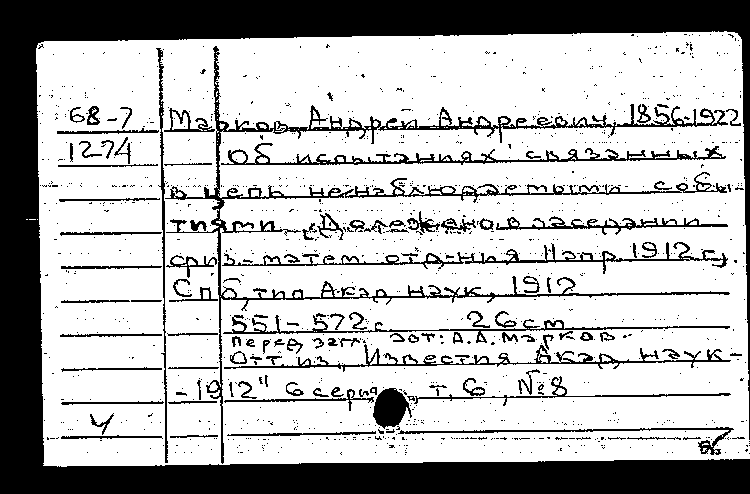 68-7 Марков, Андрей Андреевич, 1856-1922
1274 Об испытаниях связанных
в цепь не наблюдаемыми собы-
тиями. (Доложено в заседании
физ.-матем. отд-ния 11 апр. 1912 г.).
Спб, тип Акад наук, 1912
551-572 с 26 cm
Перед загл. авт: А.А. Марков.
Отт. из „Известия Акад наук-
-1912" 6 серия, т. 6, №8